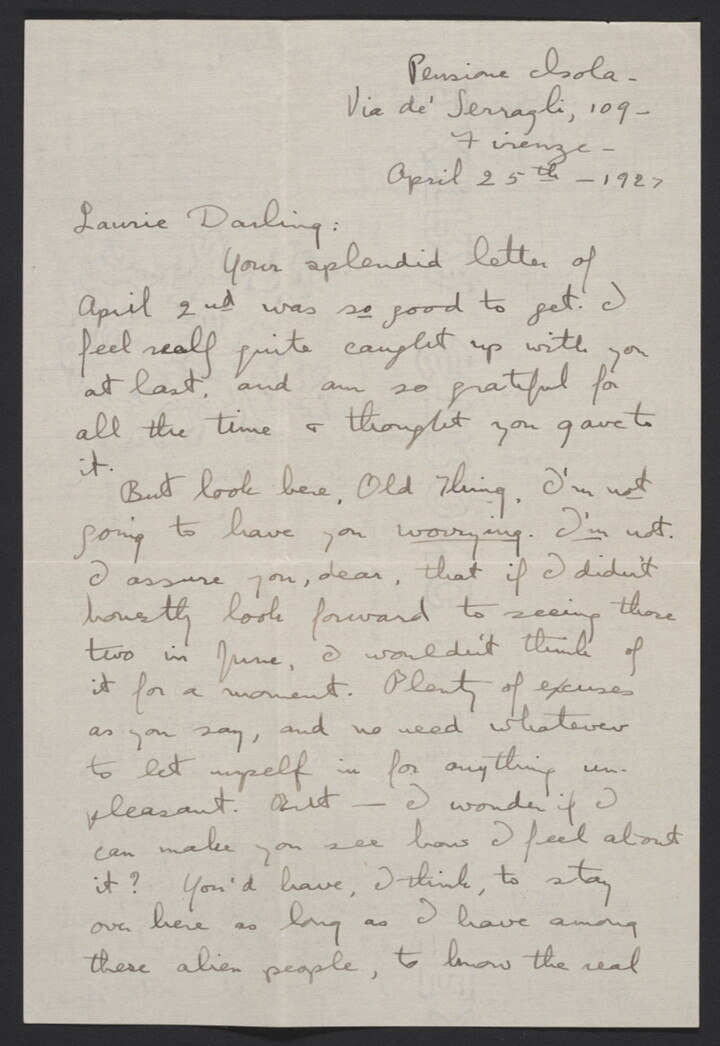 Pensione Isola -
Via de' Serragli, 109 -
Firenze -
April 25th - 1927
Laurie Darling:
Your splendid letter of
April 2nd was so good to get. I
feel really quite caught up with you
at last, and am so grateful for
all the time & thought you gave to
it.
But look here, Old Thing, I'm not
going to have you worrying. I'm not.
I assure you, dear, that if I didn't
honestly look forward to seeing those
two in June, I wouldn't think of
it for a moment. Plenty of excuses
as you say, and no need whatever
to let myself in for anything un-
pleasant. But — I wonder if I
can make you see how I feel about
it? You'd have, I think, to stay
over here as long as I have among
these alien people, to know the real